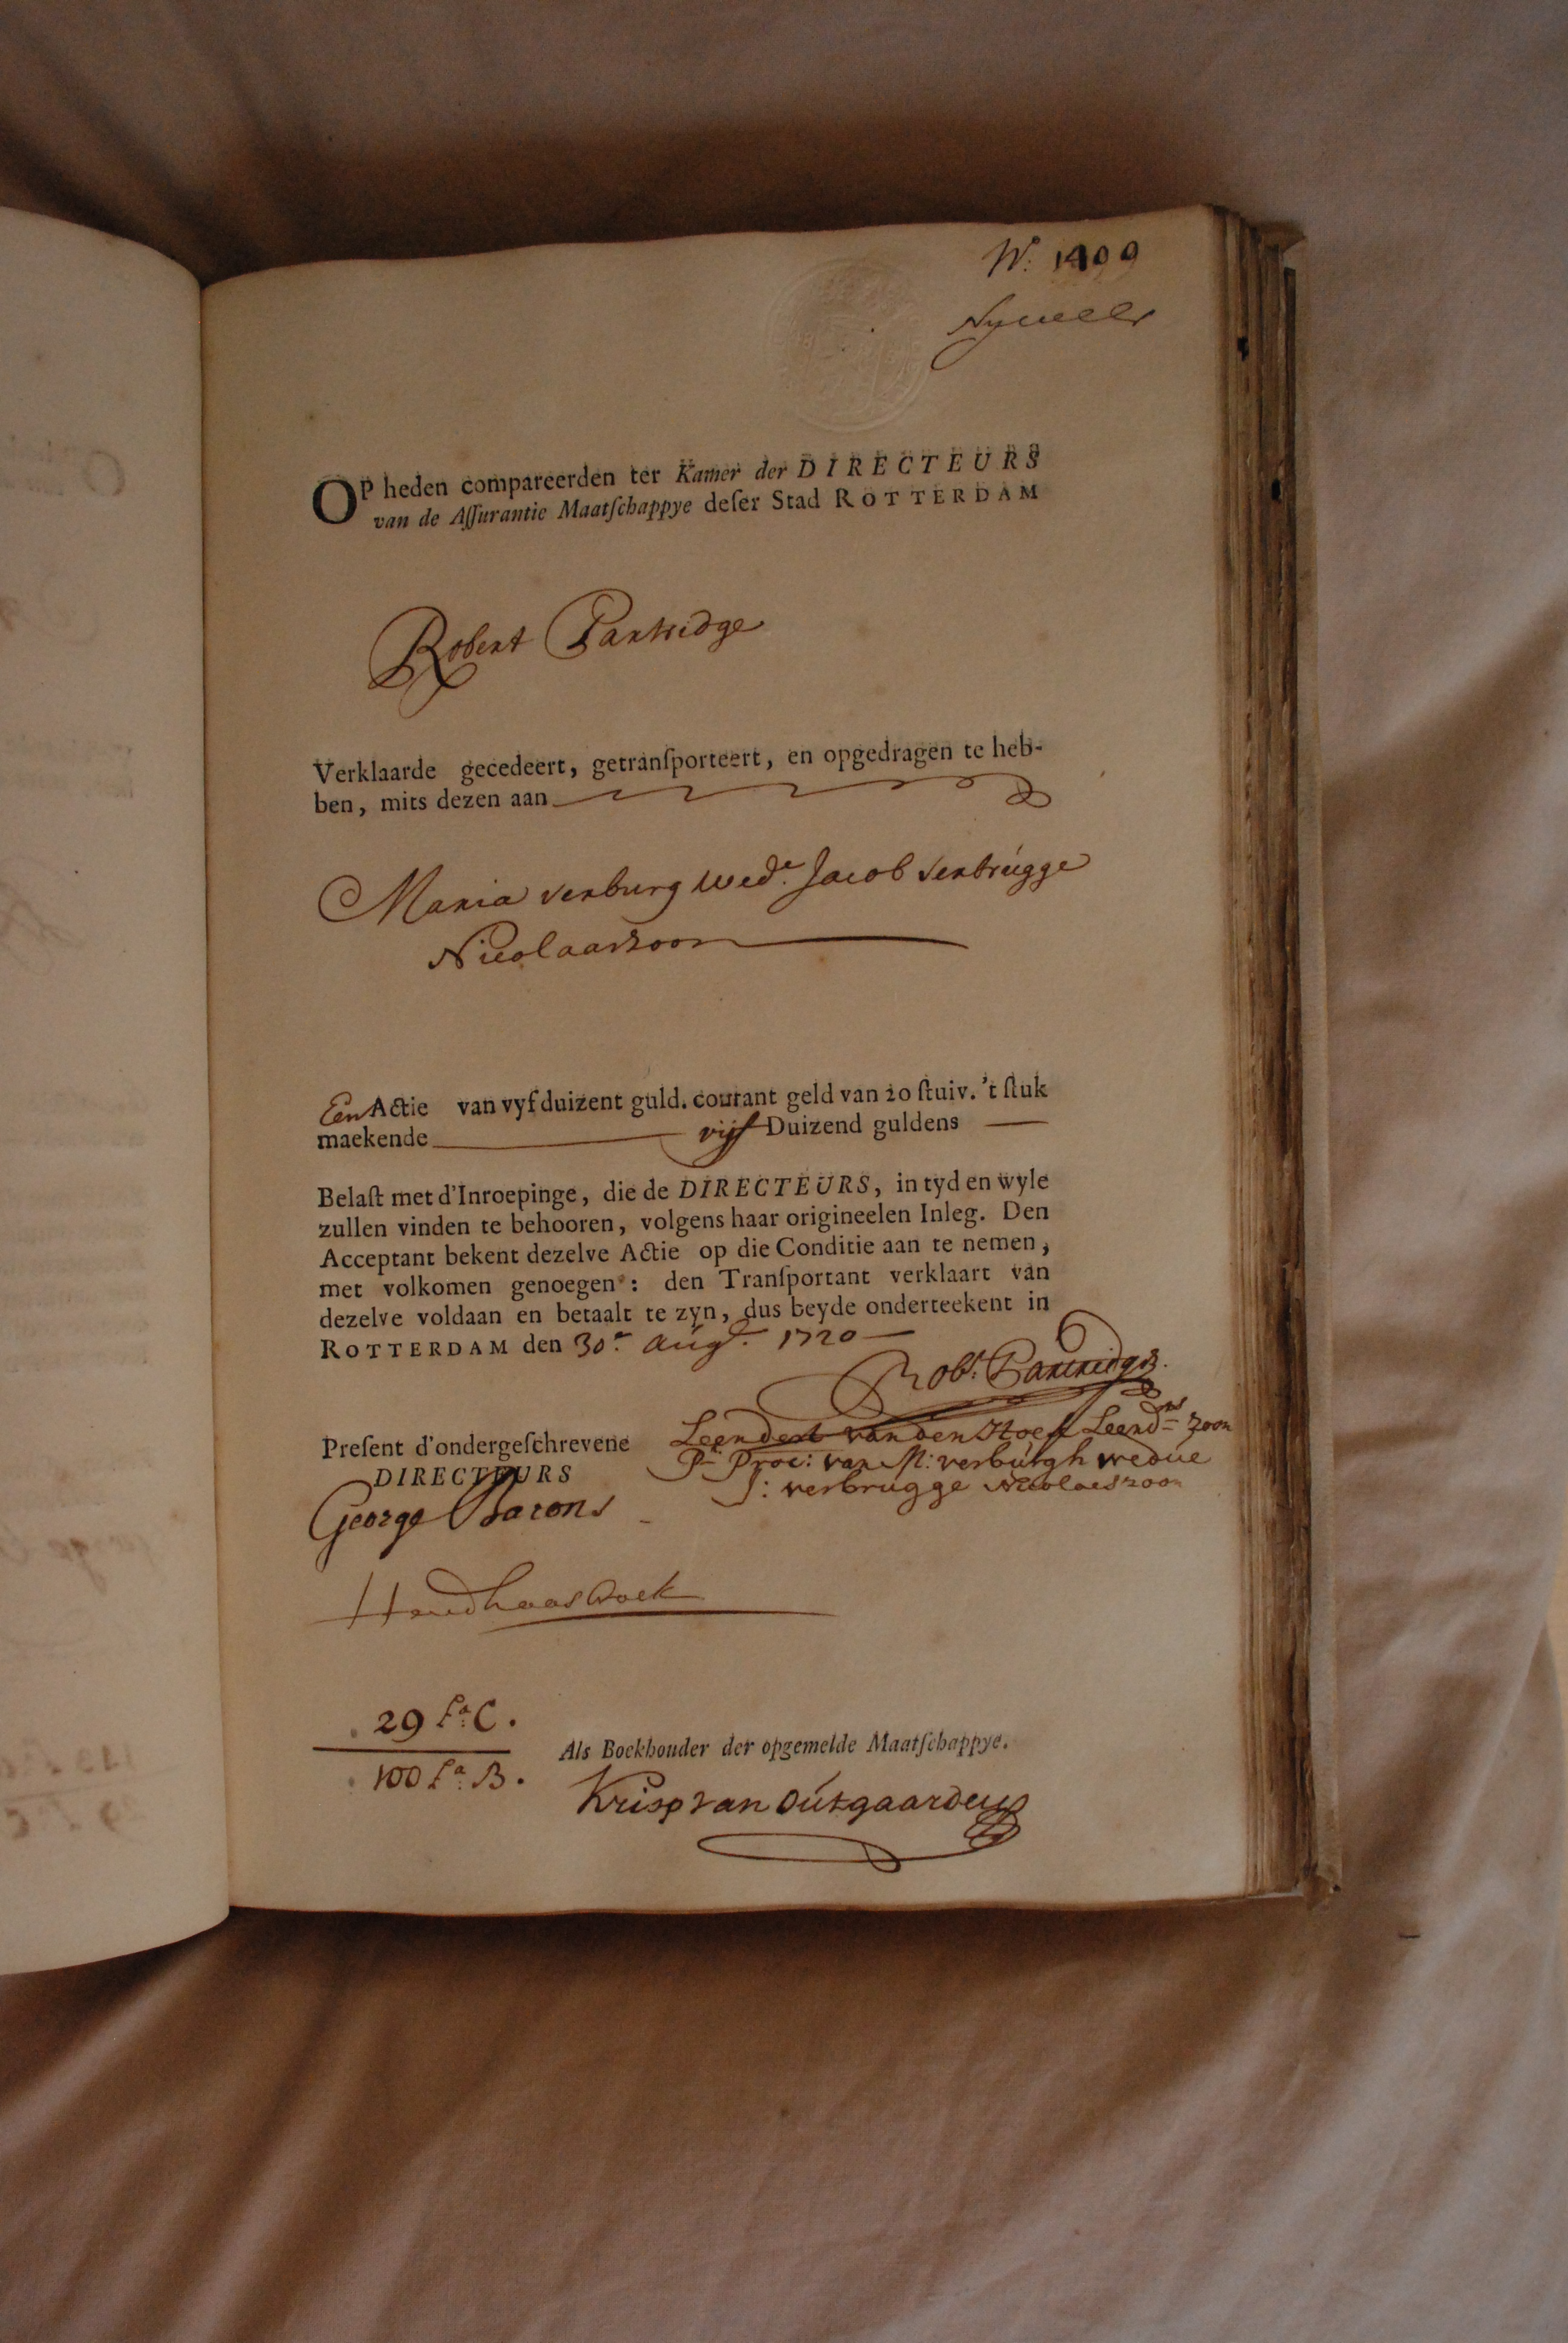 N.º 1400
OP heden compareerden ter Kamer der DIRECTEURS
van de Aſſurantie Maatſchappye deſer Stad ROTTERDAM
Robert Partridge
Verklaarde gecedeert, getranſporteert, en opgedragen te heb-
ben, mits dezen aan
Maria verburg wed.e Jacob verbrugge
Nicolaaszoon
Een Actie van vyf duizent guld. courant geld van 20 ſtuiv. 't ſtuk
maekende vijf Duizend guldens
Belaſt met d'Inroepinge, die de DIRECTEURS, in tyd en wyle
zullen vinden te behooren, volgens haar origineelen Inleg. Den
Acceptant bekent dezelve Actie op die Conditie aan te nemen,
met volkomen genoegen: den Tranſportant verklaart van
dezelve voldaan en betaalt te zyn, dus beyde onderteekent in
ROTTERDAM den 30.e Aug.t 1720
Rob.t Partridge
Leendert van den Hoeff Leend.ns zoon
Preſent d'ondergeſchrevene
P.r Proc: van M: verburgh wedúe
DIRECTEURS
J: verbrugge Nicolaeszoon
George Barons
29 f.a C.
100 f.a B.
Als Boekhouder der opgemelde Maatſchappye.
Krisp van Outgaarden